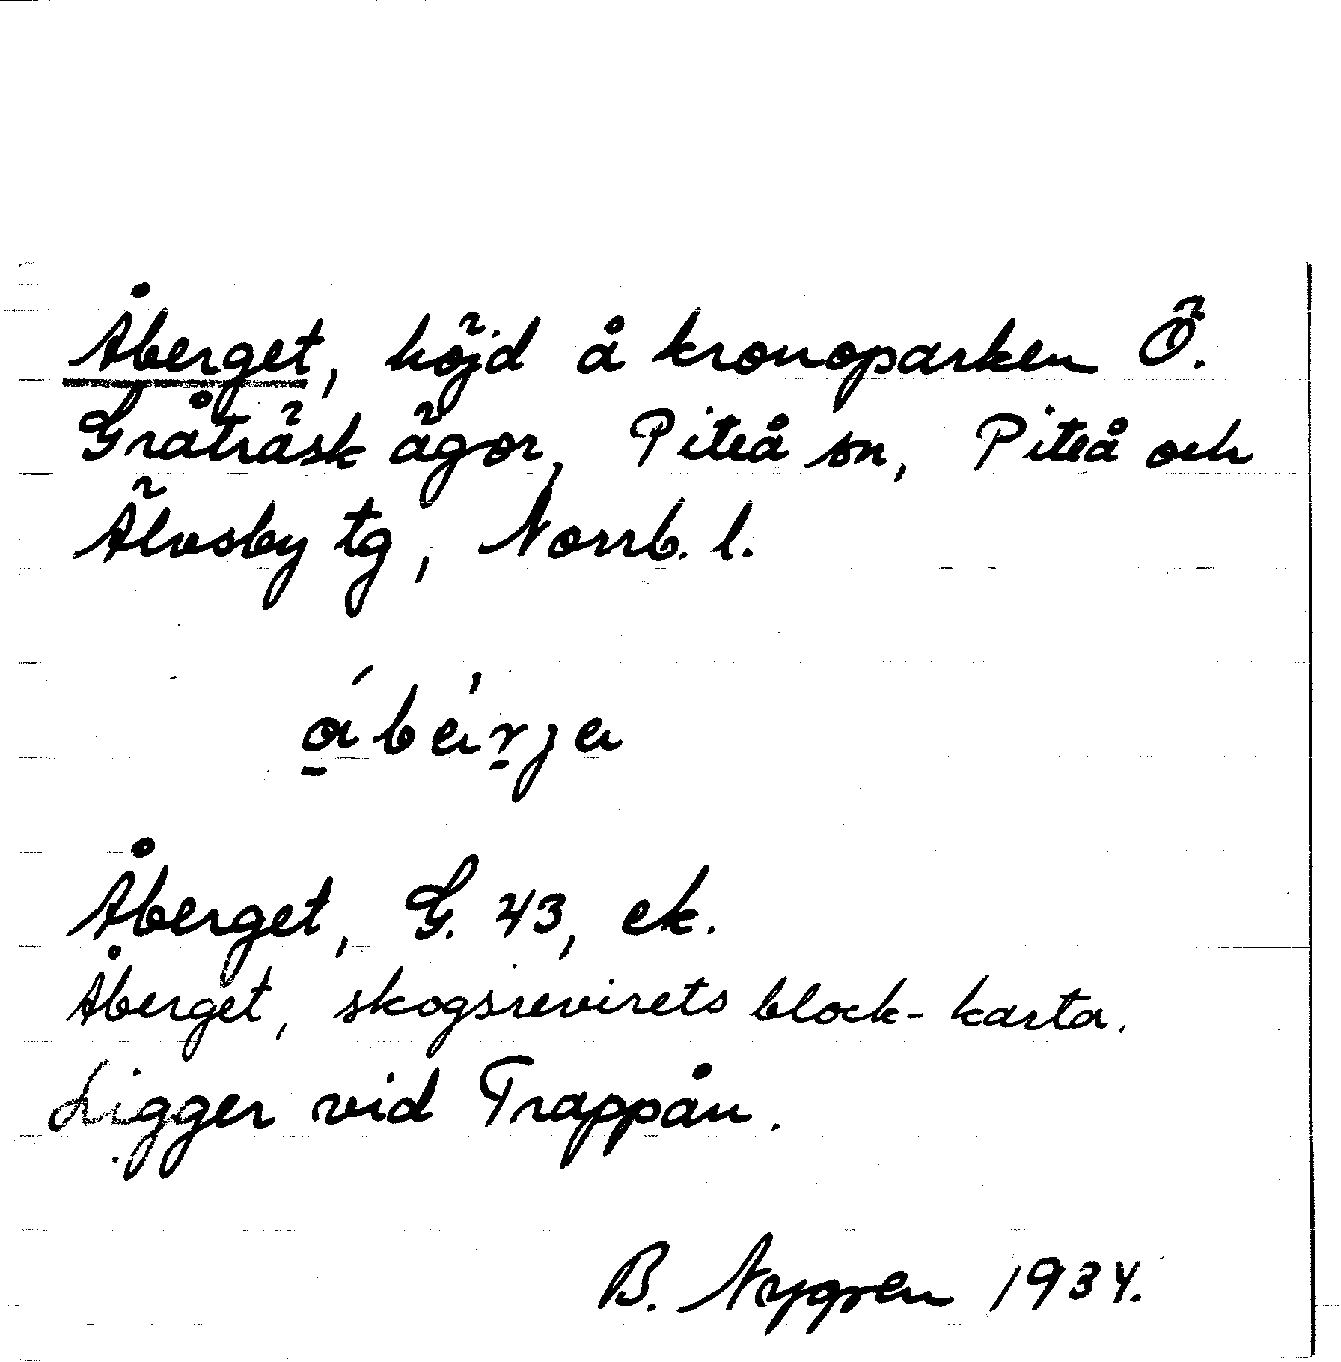 Åberget, höjd å kronoparken Ö.
Gråträsk ägor, Piteå sn, Piteå och
Älvsby tg, Norrb. l.
Åberget, G. 43, ek.
Åberget, skogsrevirets block-karta.
Ligger vid Trappån.
B. Nygren 1934.